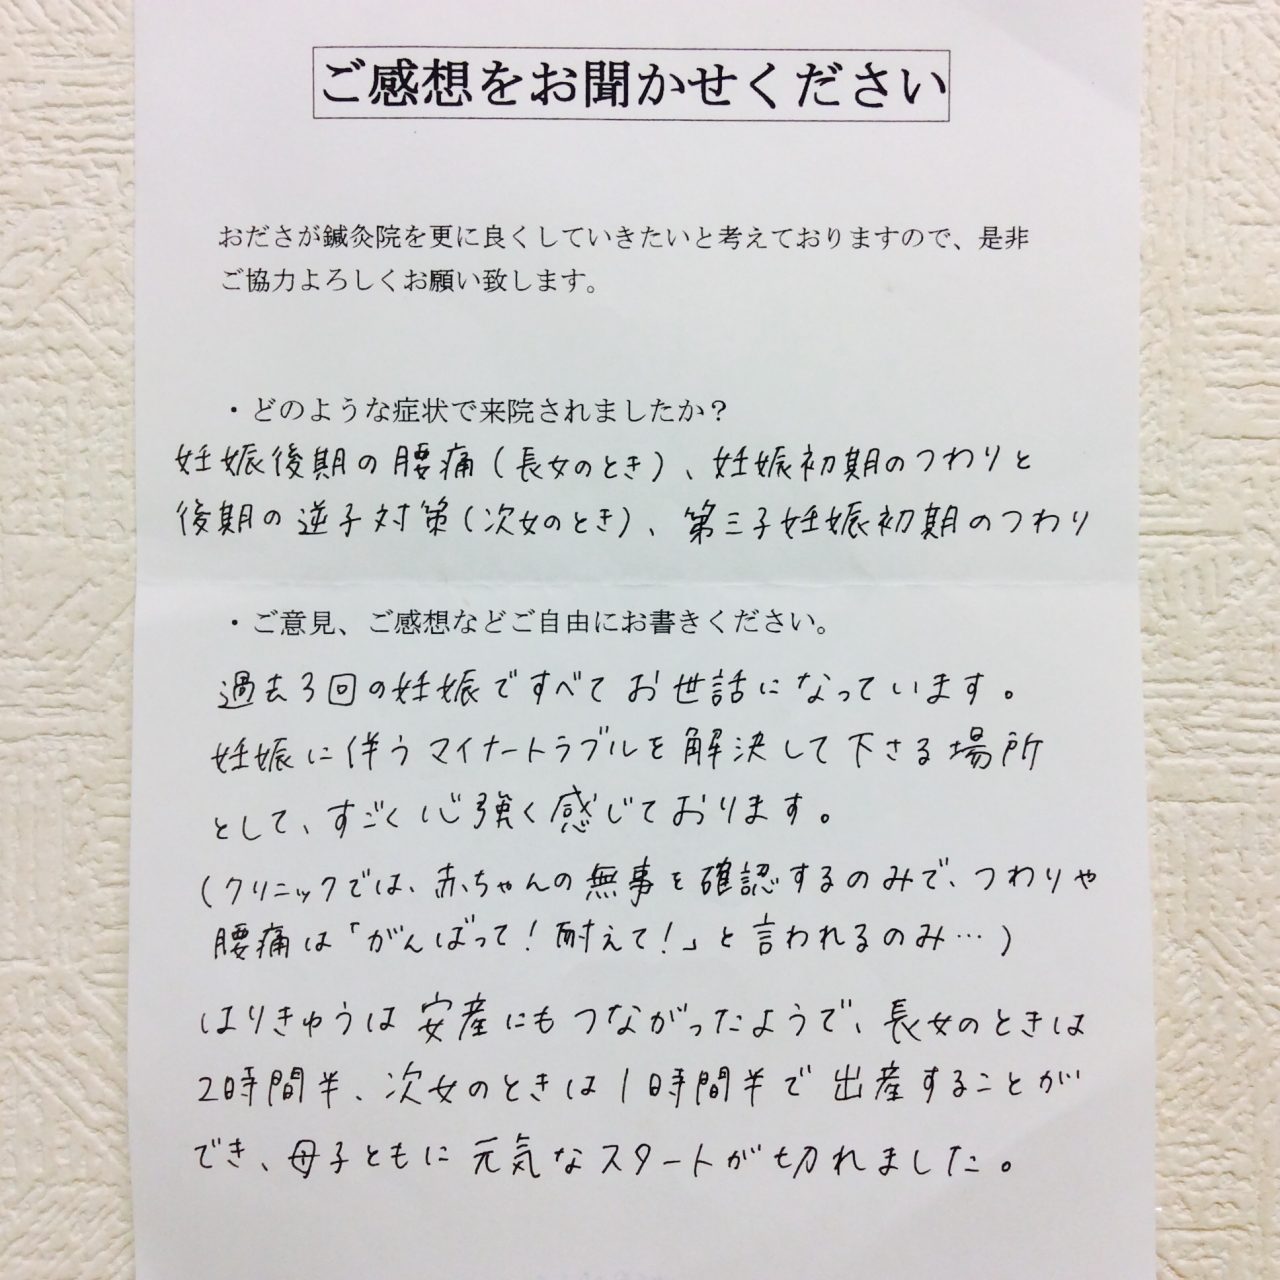 ご感想をお聞かせください
おださが鍼灸院を更に良くしていきたいと考えておりますので、是非
ご協力よろしくお願い致します。
・どのような症状で来院されましたか？
妊娠後期の腰痛(長女のとき)、妊娠初期のつわりと
後期の逆子対策(次女のとき)、第三子妊娠初期のつわり
・ご意見、ご感想などご自由にお書きください。
過去3回の妊娠ですべてお世話になっています。
妊娠に伴うマイナートラブルを解決して下さる場所
として、すごく心強く感じております。
(クリニックでは、赤ちゃんの無事を確認するのみで、つわりや
腰痛は「がんばって！耐えて！」と言われるのみ…)
はりきゅうは安産にもつながったようで、長女のときは
2時間半、次女のときは1時間半で出産することが
でき、母子ともに元気なスタートが切れました。